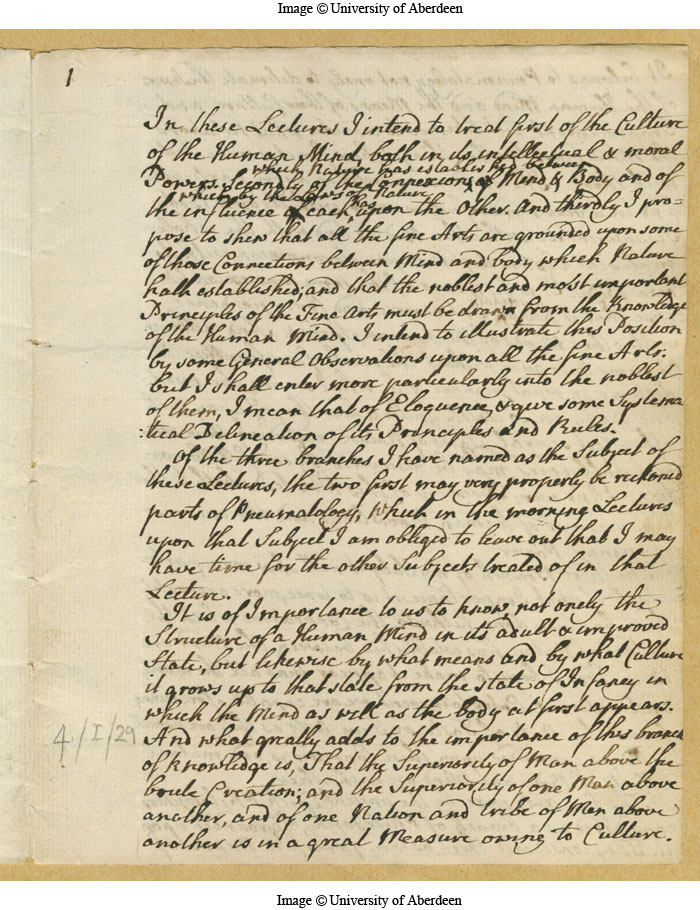 Image © University of Aberdeen
1
In these Lectures I intend to treat first of the Culture
of the Human Mind, both in its intellectual & moral
which Nature has established between
Powers. Secondly of the Connexions of Mind & Body and of
which by the Laws of Nature
the influence each has upon the Other. And thirdly I pro=
pose to shew that all the fine Arts are grounded upon some
of those Connections between Mind and body which Nature
hath established; and that the noblest and most important
Principles of the Fine Arts must be drawn from the Knowledge
of the Human Mind. I intend to illustrate this Position
by some General Observations upon all the fine Arts:
but I shall enter more particularly into the noblest
of them, I mean that of Eloquence, & give some Systema
:tical Delineation of its Principles and Rules.
Of the three branches I have named as the Subject of
these Lectures, the two first may very properly be reckoned
parts of Pneumatology, which in the morning Lectures
upon that Subject I am obliged to leave out that I may
have time for the other Subjects treated of in that
Lecture.
It is of Importance to us to know, not onely the
Structure of a Human Mind in its adult & improved
State, but likewise by what means and by what Culture
it grows up to that state from the state of Infancy in
which the Mind as well as the body at first appears.
And what greatly adds to the importance of this branch
of knowledge is, That the Superiority of Man above the
brute Creation; and the Superiority of one Man above
another, and of one Nation and tribe of Men above
another is in a great Measure owing to Culture.
4/I/29
Image © University of Aberdeen